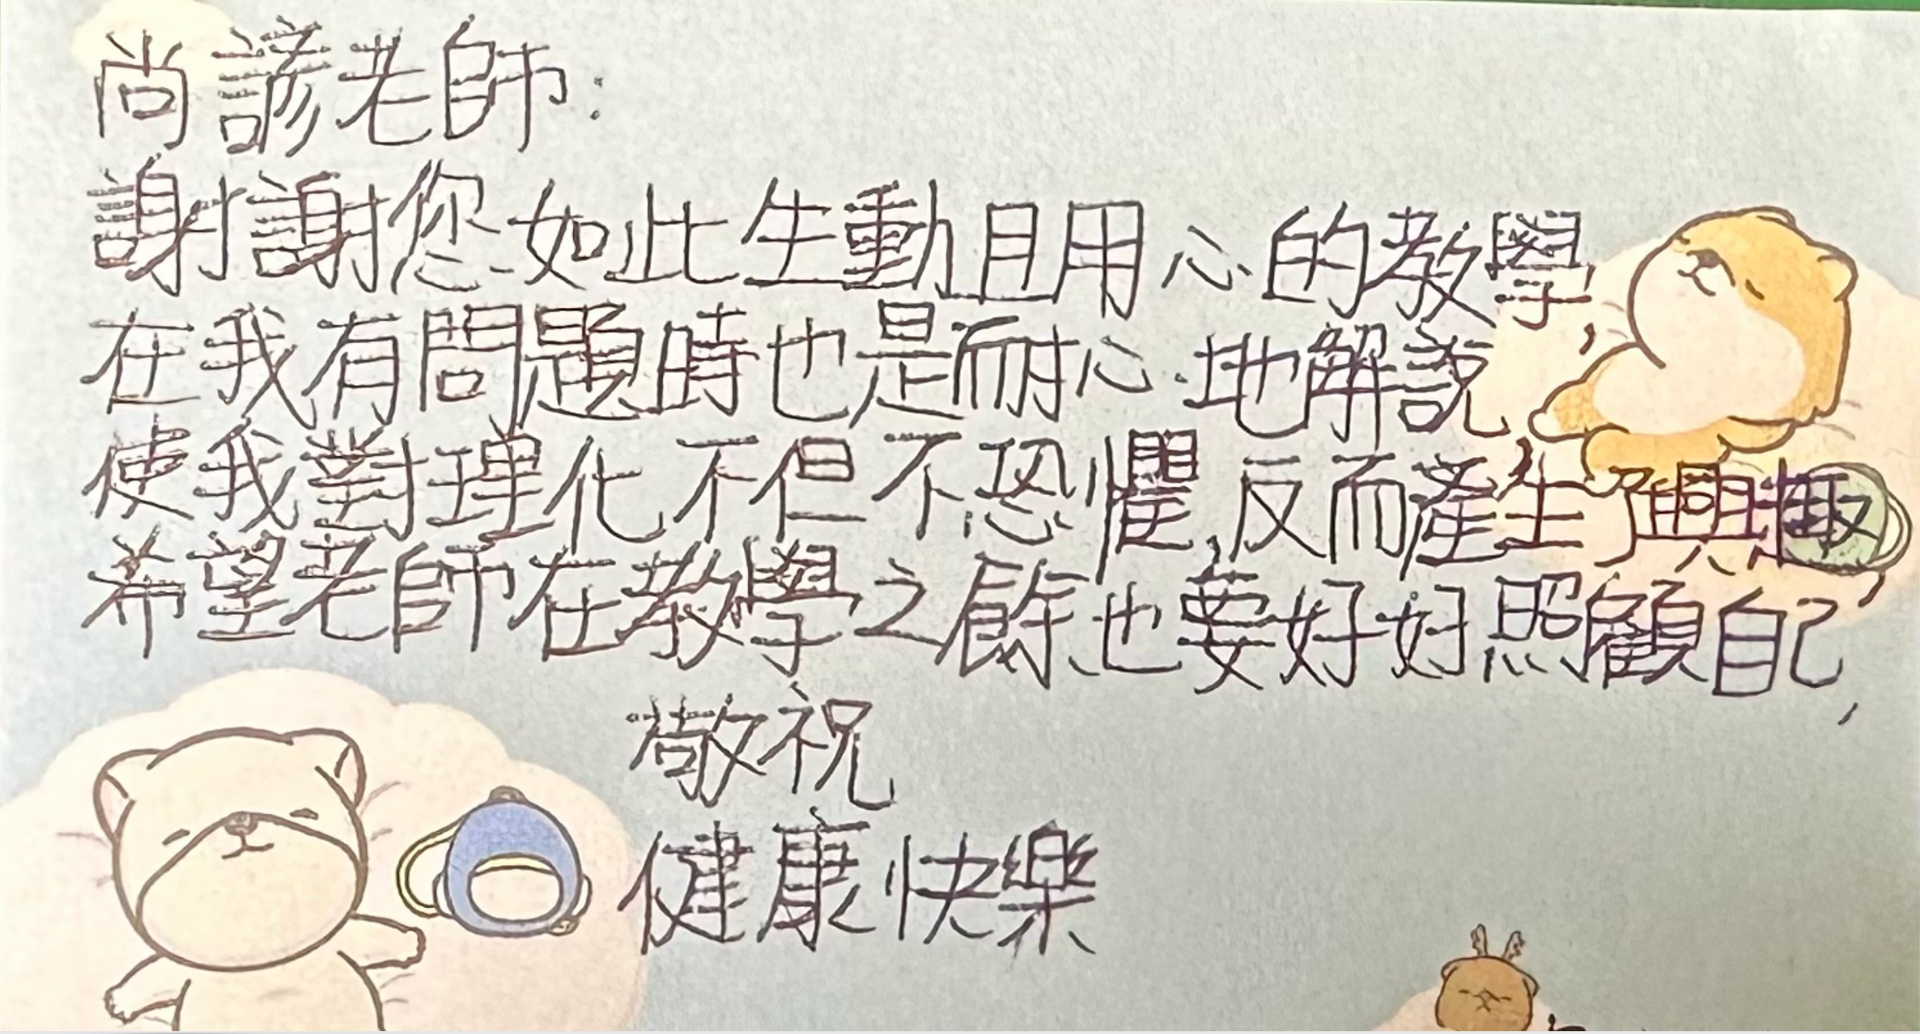 尚諺老師:
謝謝您如此生動且用心的教學,
在我有問題時也是耐心地解說,
使我對理化不但不恐懼,反而產生了興趣,
希望老師在教學之餘也要好好照顧自己,
敬祝
健康快樂